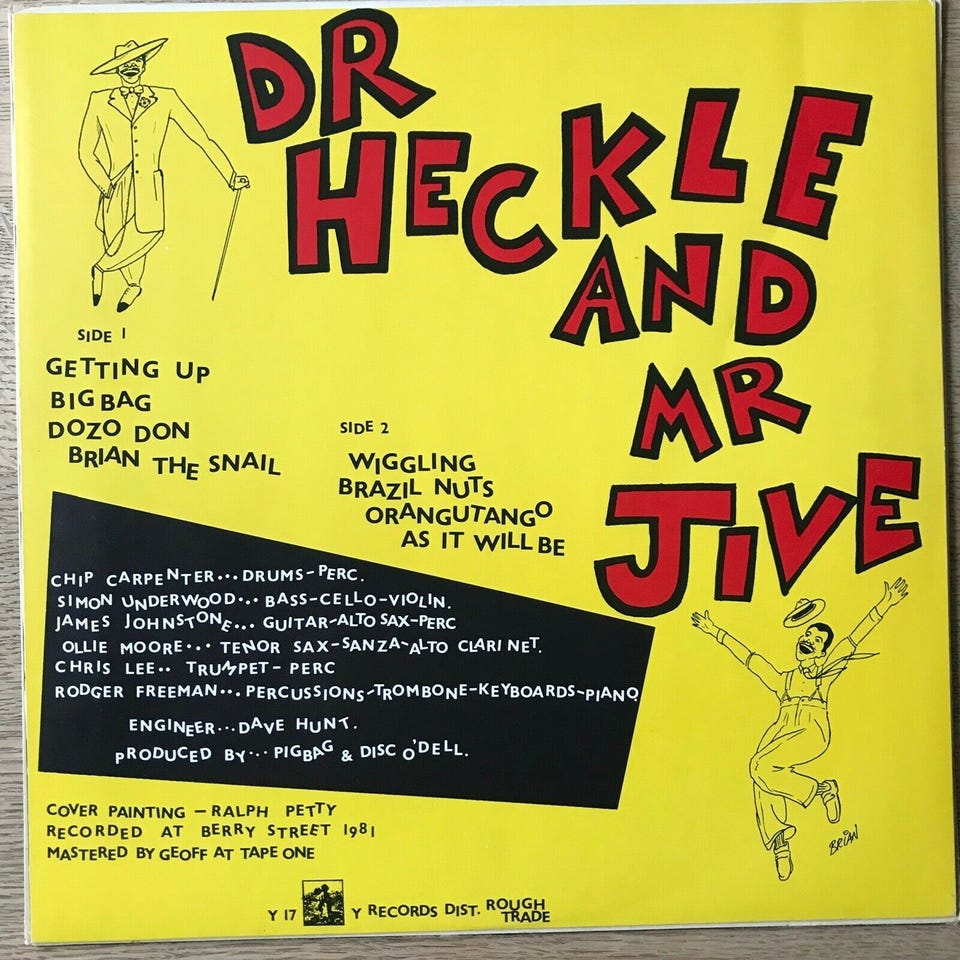 DR
HECKLE
AND
MR
JIVE
SIDE 1
GETTING UP
BIG BAG
DOZO DON
BRIAN THE SNAIL
SIDE 2
WIGGLING
BRAZIL NUTS
ORANGUTANGO
AS IT WILL BE
CHIP CARPENTER... DRUMS-PERC.
SIMON UNDERWOOD... BASS-CELLO-VIOLIN.
JAMES JOHNSTONE... GUITAR-ALTO SAX-PERC
OLLIE MOORE... TENOR SAX-SANZA-ALTO CLARINET.
CHRIS LEE.. TRUMPET- PERC
RODGER FREEMAN... PERCUSSIONS-TROMBONE-KEYBOARDS-PIANO
ENGINEER... DAVE HUNT.
PRODUCED BY... PIGBAG & DISC O'DELL.
COVER PAINTING - RALPH PETTY
RECORDED AT BERRY STREET 1981
MASTERED BY GEOFF AT TAPE ONE
BRIAN
Y 17 Y RECORDS DIST. ROUGH TRADE